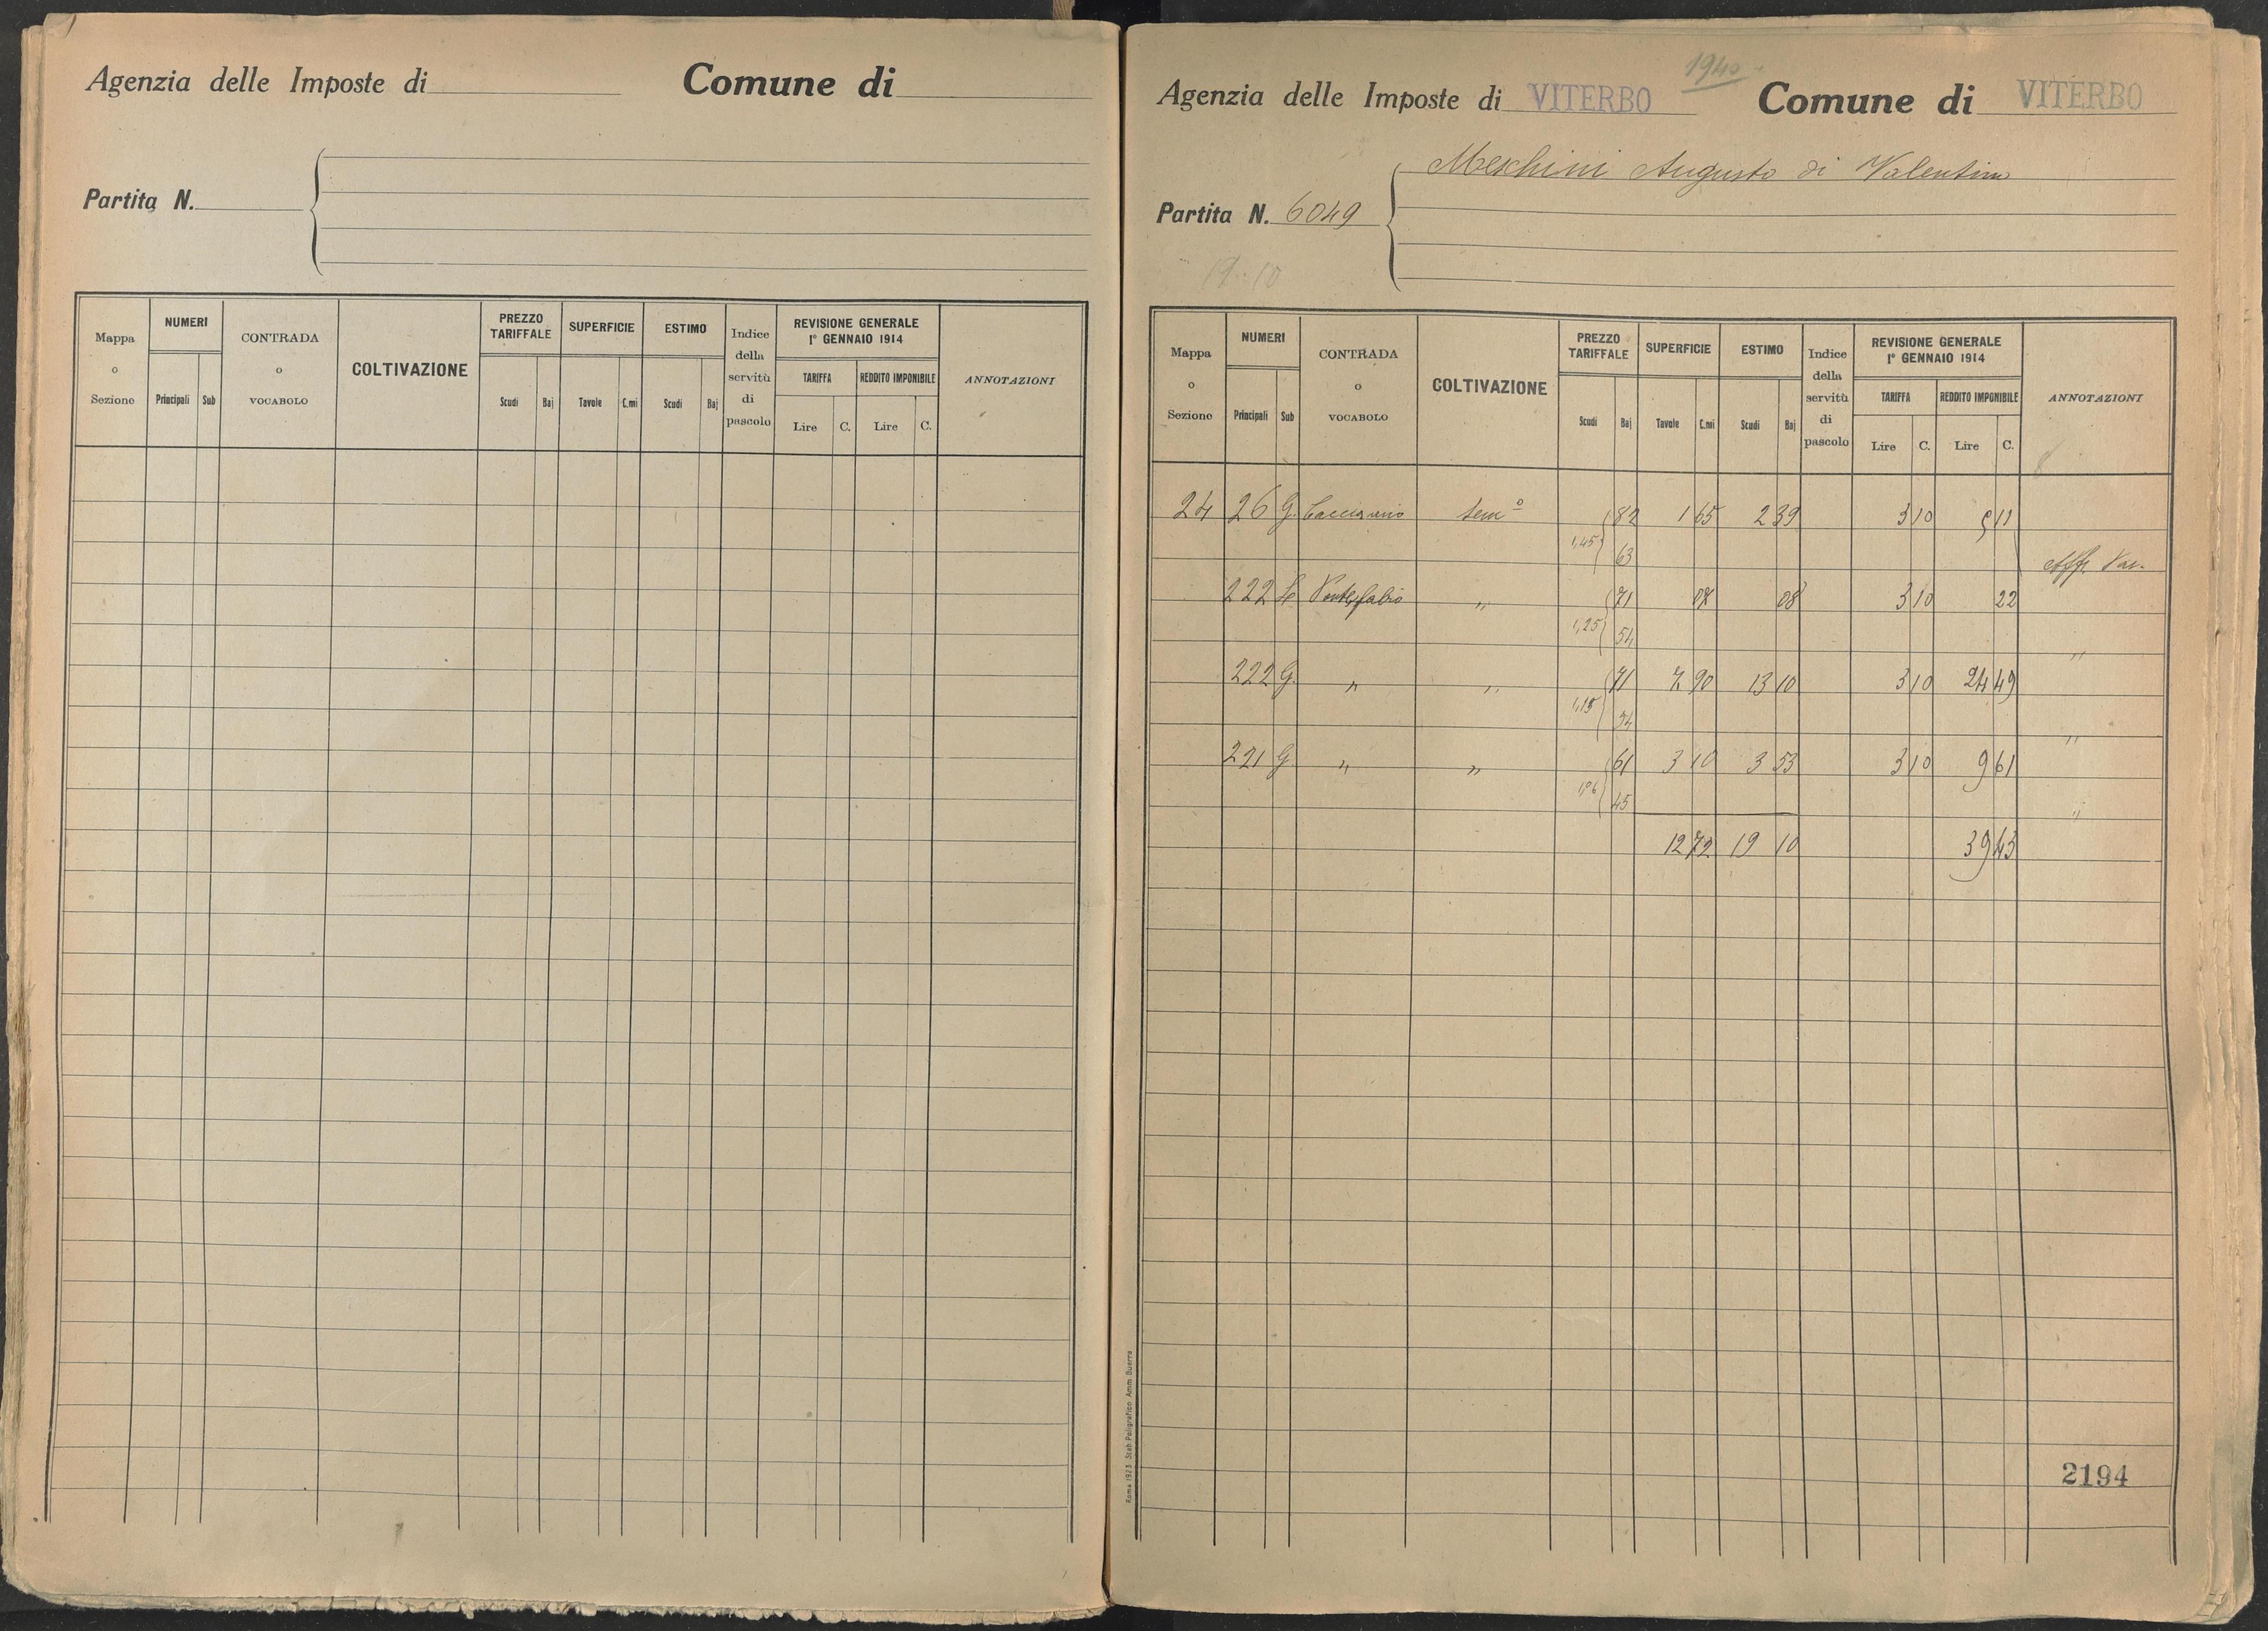 Agenzia delle Imposte di Comune di
Partita N.
Mappa o Sezione NUMERI Principali Sub CONTRADA o VOCABOLO COLTIVAZIONE PREZZO TARIFFALE Scudi Baj SUPERFICIE Tavole C.mi ESTIMO Scudi Baj Indice della servitù di pascolo REVISIONE GENERALE 1° GENNAIO 1914 TARIFFA Lire C. REDDITO IMPONIBILE Lire C. ANNOTAZIONI
1940
Agenzia delle Imposte di VITERBO Comune di VITERBO
Meschini Augusto di Valentino
Partita N. 6049
Mappa o Sezione NUMERI Principali Sub CONTRADA o VOCABOLO COLTIVAZIONE PREZZO TARIFFALE Scudi Baj SUPERFICIE Tavole C.mi ESTIMO Scudi Baj Indice della servitù di pascolo REVISIONE GENERALE 1° GENNAIO 1914 TARIFFA Lire C. REDDITO IMPONIBILE Lire C. ANNOTAZIONI
24 26 G. Semº 82 1 65 2 39 3 10 5 11
1,45 63 Affr.
222 71 07 08 3 10 22
1,25 54 "
222 G. " " 71 7 90 13 10 3 10 24 49
1,15 54 "
221 G " " 61 3 10 3 53 3 10 9 61
45 "
12 72 19 10 39 43
2194
Roma 1923 Stab. Poligrafico Amm. Guerra